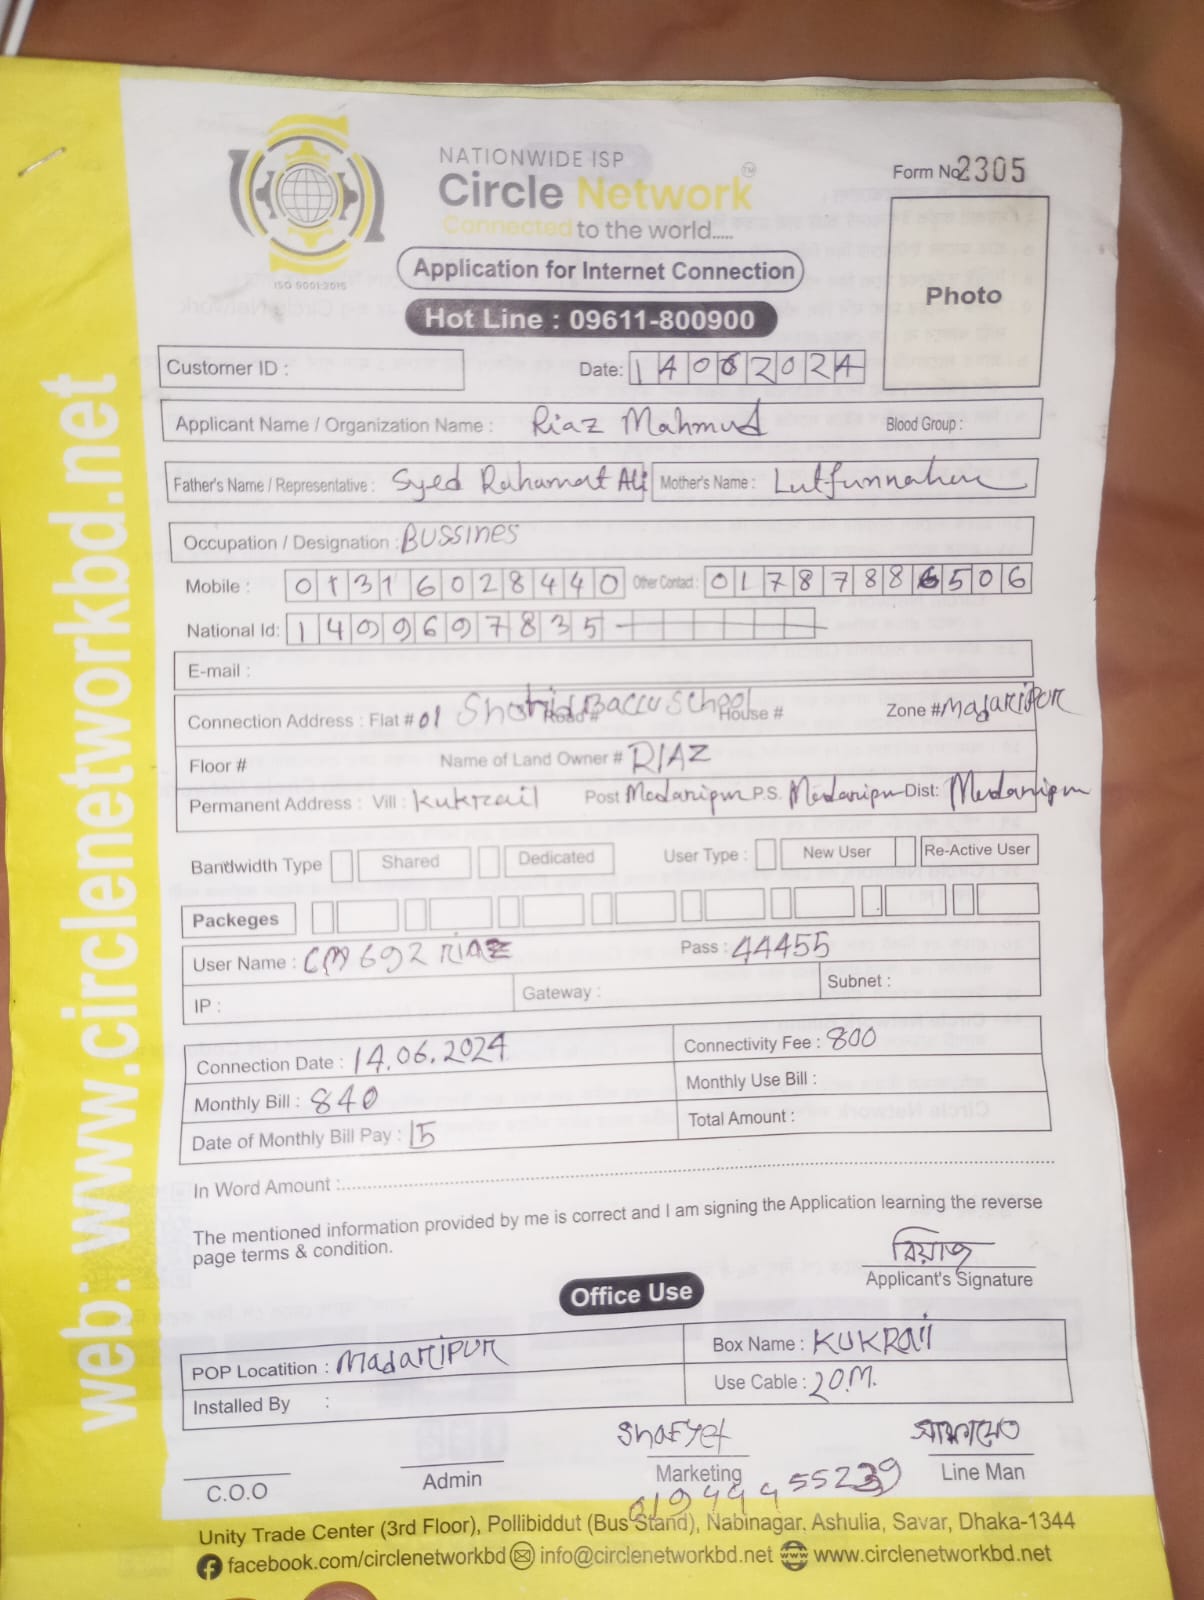 NATIONWIDE ISP
Circle Network™
Connected to the world.....
ISO 9001:2015
Form No 2305
Application for Internet Connection
Hot Line : 09611-800900
Photo
Customer ID :
Date: 14062024
Applicant Name / Organization Name : Riaz Mahmud
Blood Group :
Father's Name / Representative : Syed Rahamat Ali
Mother's Name : Lutfunnaher
Occupation / Designation : BUSSINES
Mobile : 01316028440
Other Contact : 01787886506
National Id: 1499697835
E-mail :
Connection Address : Flat # 01 Shahid Baccu School Road # House # Zone # Madaripur
Floor # Name of Land Owner # RIAZ
Permanent Address : Vill : Kukrail Post Madaripur P.S. Madaripur Dist: Madaripur
Bandwidth Type Shared Dedicated User Type : New User Re-Active User
Packeges
User Name : CM692 RIAZ Pass : 44455
IP : Gateway : Subnet :
Connection Date : 14.06.2024 Connectivity Fee : 800
Monthly Bill : 840 Monthly Use Bill :
Date of Monthly Bill Pay : 15 Total Amount :
In Word Amount :
The mentioned information provided by me is correct and I am signing the Application learning the reverse
page terms & condition.
রিয়াজ
Applicant's Signature
Office Use
POP Locatition : Madaripur Box Name : KUKRail
Installed By : Use Cable : 20.M.
Shafyet
C.O.O Admin Marketing Line Man
Unity Trade Center (3rd Floor), Pollibiddut (Bus Stand), Nabinagar, Ashulia, Savar, Dhaka-1344
facebook.com/circlenetworkbd info@circlenetworkbd.net www.circlenetworkbd.net
web: www.circlenetworkbd.net